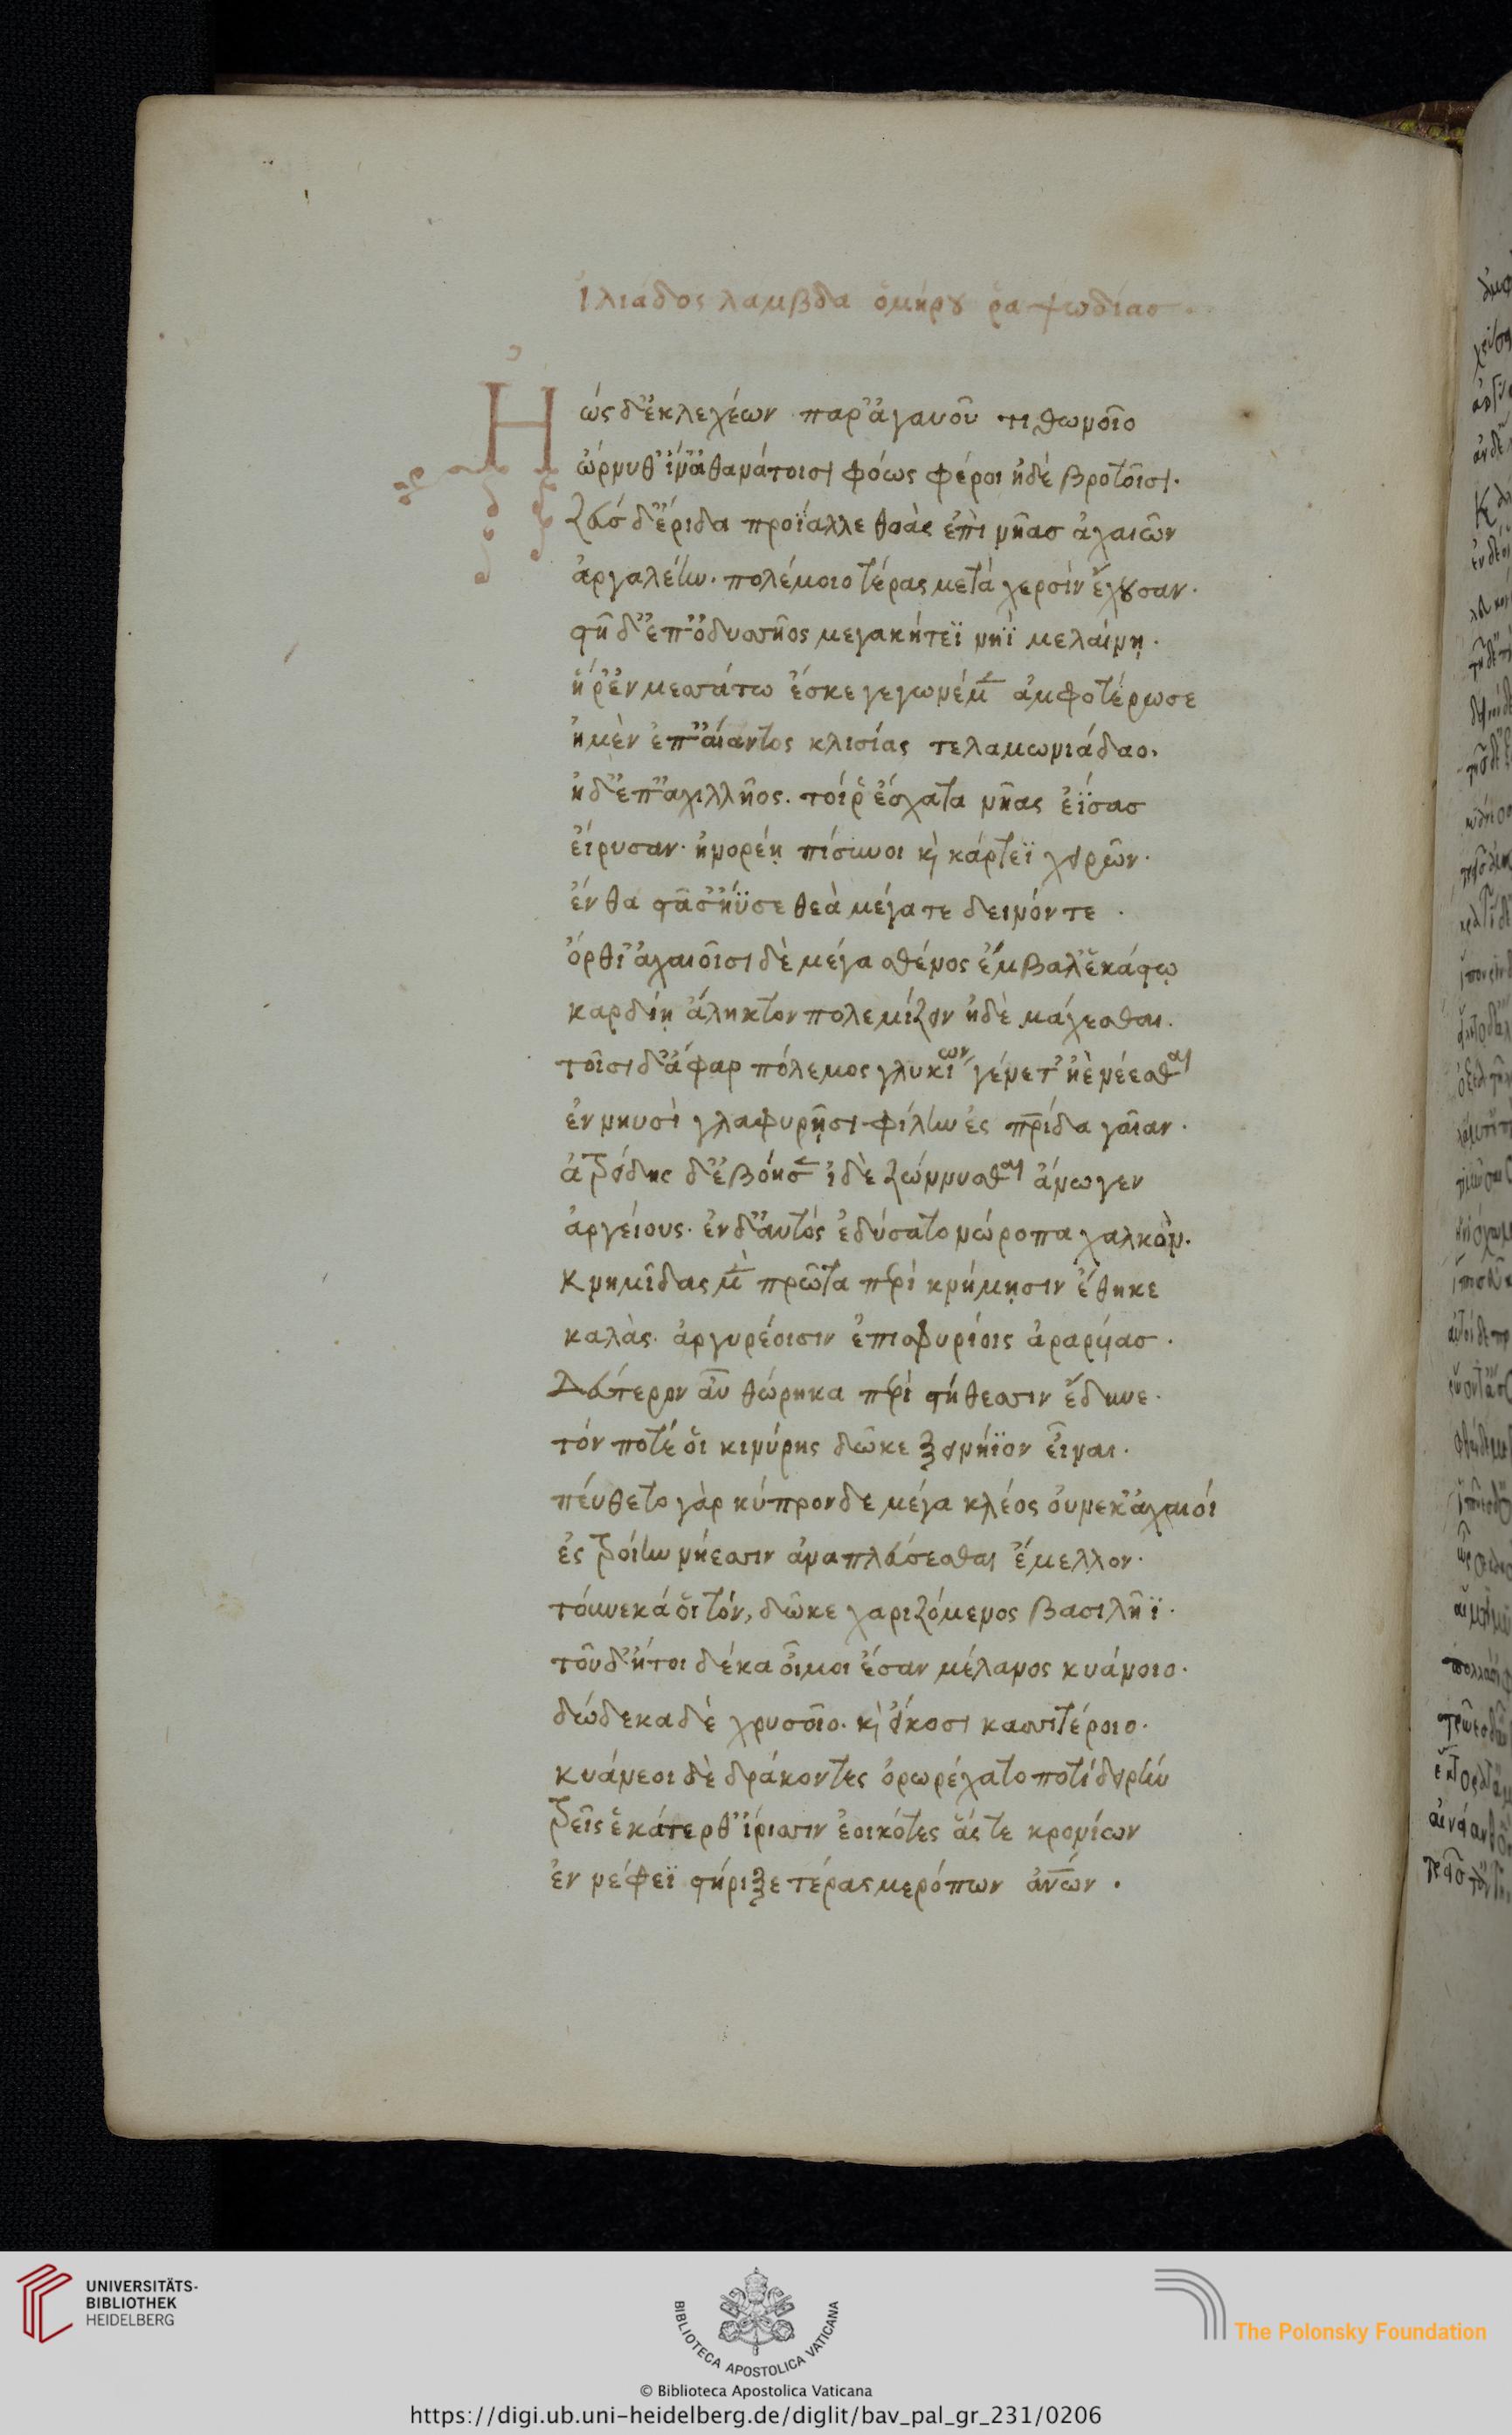 ἰλιάδος λαμβδα ὁμήρου ῥαψωδίας.
Ἠὼς δ' ἐκ λεχέων παρ' ἀγαυοῦ τιθωνοῖο
ὤρνυθ' ἵν' ἀθανάτοισι φόως φέροι ἠδὲ βροτοῖσι.
ζεύς δ' ἔριδα προΐαλλε θοὰς ἐπὶ νῆασ ἀχαιῶν
ἀργαλέην. πολέμοιο τέρας μετὰ χερσὶν ἔχουσαν.
στῆ δ' ἐπ' ὀδυσσῆος μεγακήτεϊ νηῒ μελαίνῃ.
ἥ ῥ' ἐν μεσσάτω ἔσκε γεγωνέμεν ἀμφοτέρωσε
ἠμὲν ἐπ' αἴαντος κλισίας τελαμωνιάδαο.
ἠδ' ἐπ' ἀχιλλῆος. τοί ῥ' ἔσχατα νῆας ἐΐσασ
εἴρυσαν. ἠνορέῃ πίσυνοι κὶ κάρτεϊ χειρῶν.
ἔνθα στᾶσ' ἤϋσε θεὰ μέγα τε δεινόν τε.
ὄρθι' ἀχαιοῖσι δὲ μέγα σθένος ἔμβαλ' ἑκάστῳ
καρδίῃ ἄληκτον πολεμίζειν ἠδὲ μάχεσθαι.
τοῖσι δ' ἄφαρ πόλεμος γλυκίων γένετ' ἠὲ νέεσθαι
ἐν νηυσὶ γλαφυρῇσι φίλην ἐς πρίδα γαῖαν.
ἀτρείδης δ' ἐβόησεν ἰδὲ ζώννυσθαι ἄνωγεν
ἀργείους. ἐν δ' αυτός ἐδύσατο νώροπα χαλκὸν.
κνημῖδας μὲν πρῶτα περὶ κνήμῃσιν ἔθηκε
καλὰς. ἀργυρέοισιν ἐπισφυρίοις ἀραρυίασ.
Δεύτερον αῦ θώρηκα περὶ στήθεσσιν ἔδυνε.
τόν ποτέ ὅι κινύρης δῶκε ξεινήϊον εἶναι.
πέυθετο γὰρ κύπρονδε μέγα κλέος ὀυνεκ' ἀχαιόι
ἐς τροίην νήεσσιν ἀναπλεύσεσθαι ἔμελλον.
τόυνεκά ὅι τόν, δῶκε χαριζόμενος βασιλῆϊ.
τοῦ δ' ἤτοι δέκα οἶμοι ἔσαν μέλανος κυάνοιο.
δώδεκα δὲ χρυσοῖο. κὶ εἴκοσι κασσιτέροιο.
κυάνεοι δὲ δράκοντες ὀρωρέχατο ποτὶ δειρὴν
τρεῖς ἑκάτερθ' ἴρισσιν ἐοικότες ἅς τε κρονίων
ἐν νέφεϊ στήριξε τέρας μερόπων ἀνων.
UNIVERSITÄTS-
BIBLIOTHEK
HEIDELBERG
BIBLIOTECA APOSTOLICA VATICANA
© Biblioteca Apostolica Vaticana
The Polonsky Foundation
https://digi.ub.uni-heidelberg.de/diglit/bav_pal_gr_231/0206